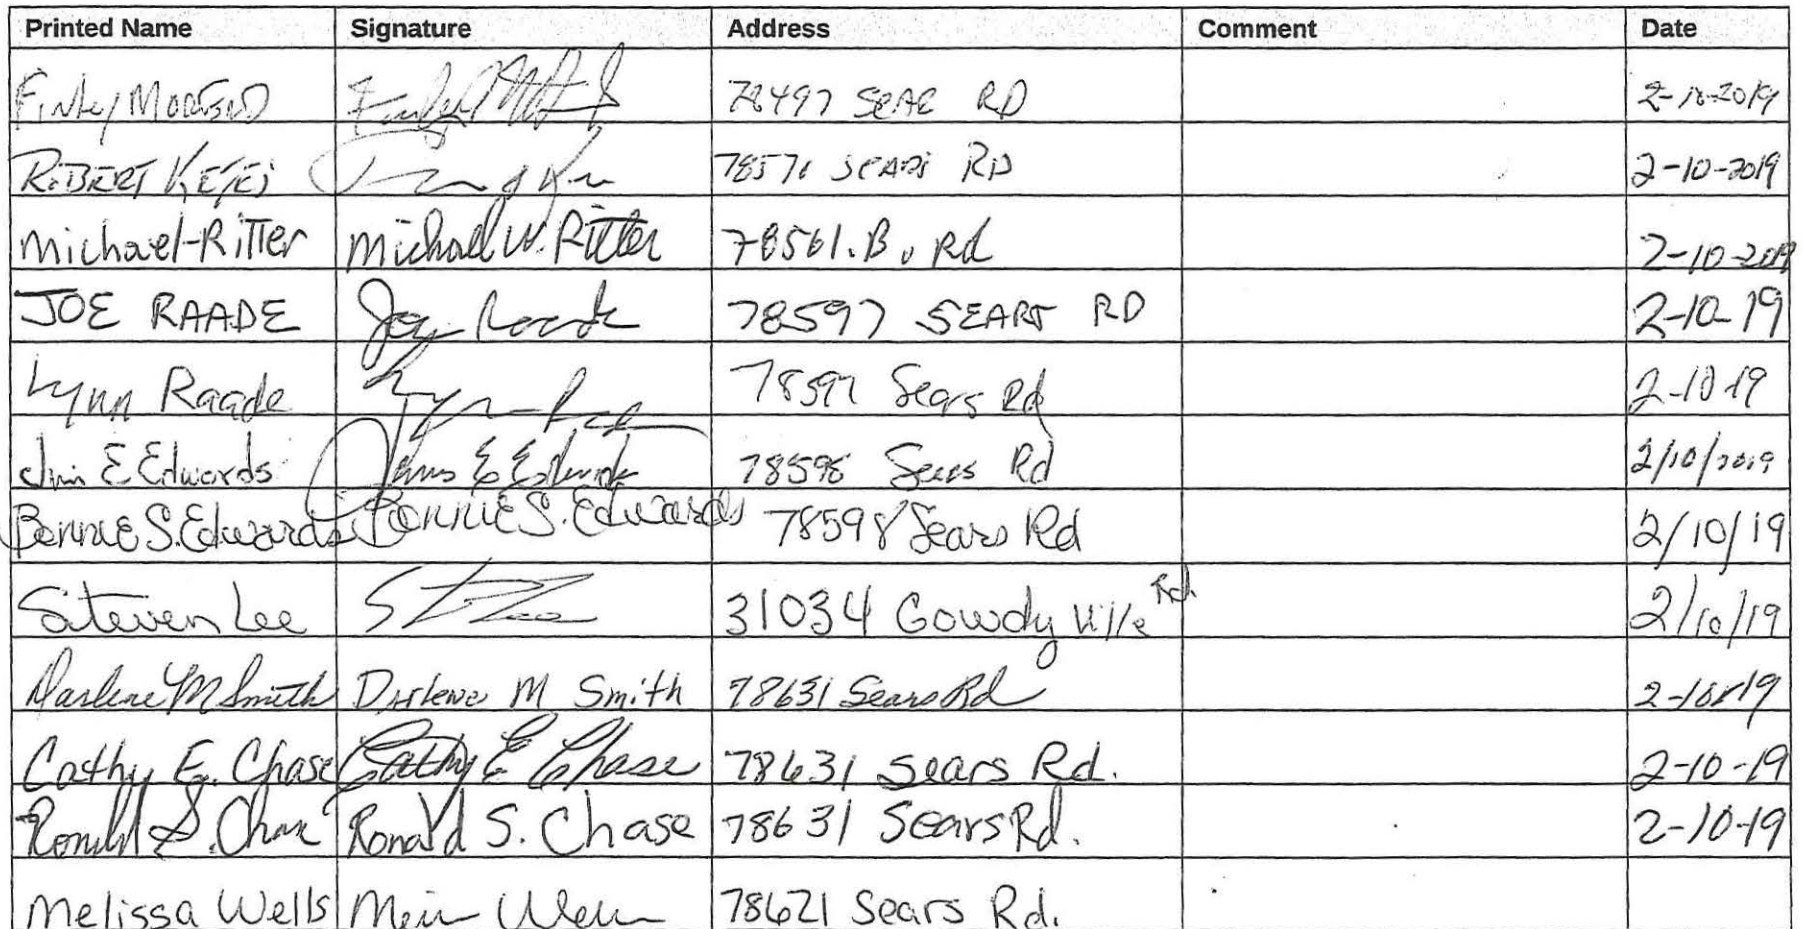 Printed Name Signature Address Comment Date
78497 SEAR RD 2-18-2019
ROBERT KEYES 78571 SEARS RD 2-10-2019
Michael-Ritter Michael W. Ritter 78561.B. Rd 2-10-2019
JOE RAADE Joe Raade 78597 SEARS RD 2-10-19
Lynn Raade 78597 Sears Rd 2-10-19
Jim E Edwards James E Edwards 78598 Sears Rd 2/10/2019
Bonnie S. Edwards Bonnie S. Edwards 78598 Sears Rd 2/10/19
Steven Lee 31034 Gowdy Ville Rd 2/10/19
Darlene M Smith Darlene M Smith 78631 Sears Rd 2-10-19
Cathy E. Chase Cathy E Chase 78631 Sears Rd. 2-10-19
Ronald S. Chase Ronald S. Chase 78631 Sears Rd. 2-10-19
Melissa Wells 78621 Sears Rd.